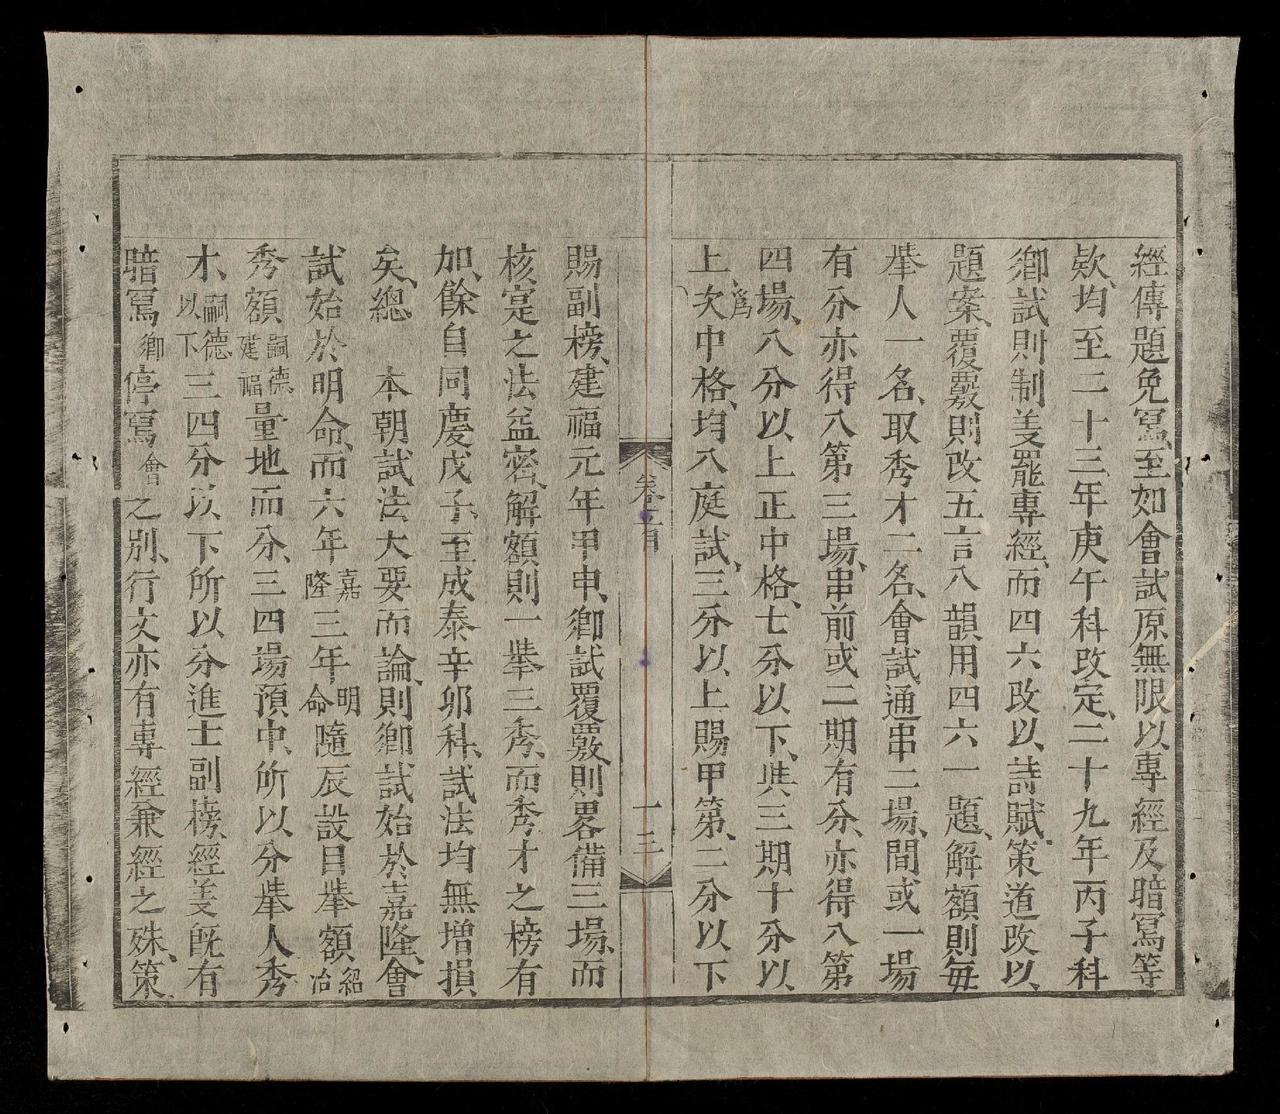 經傳題免冩、至如會試原無限以專經及暗寫等
欵、均至二十三年庚午科改定、二十九年丙子科
鄉試則制義罷專經、而四六改以詩賦、策道改以
題案、覆覈則改五言八韻用四六一題、解額則每
舉人一名、取秀才二名、會試通串二場、間或一場
有分亦得入第三場、串前或二期有分、亦得入第
四場、八分以上正中格、七分以下、與三期十分以
上次爲中格、均入庭試、三分以上賜甲第、二分以下
卷首
一三
賜副榜、建福元年甲申、鄉試覆覈則畧備三場、而
核寔之法益密、解額則一舉三秀、而秀才之榜有
加、餘自同慶戊子、至成泰辛卯科、試法均無增損
矣、總　本朝試法大要而論、則鄉試始於嘉隆、會
試始於明命、而六年嘉隆三年明命隨辰設目舉額紹治
秀額嗣德建福量地而分、三四場預中、所以分舉人秀
才、嗣德以下三四分以下所以分進士副榜、經義旣有
暗寫鄉停寫會之別、行文亦有專經兼經之殊、策